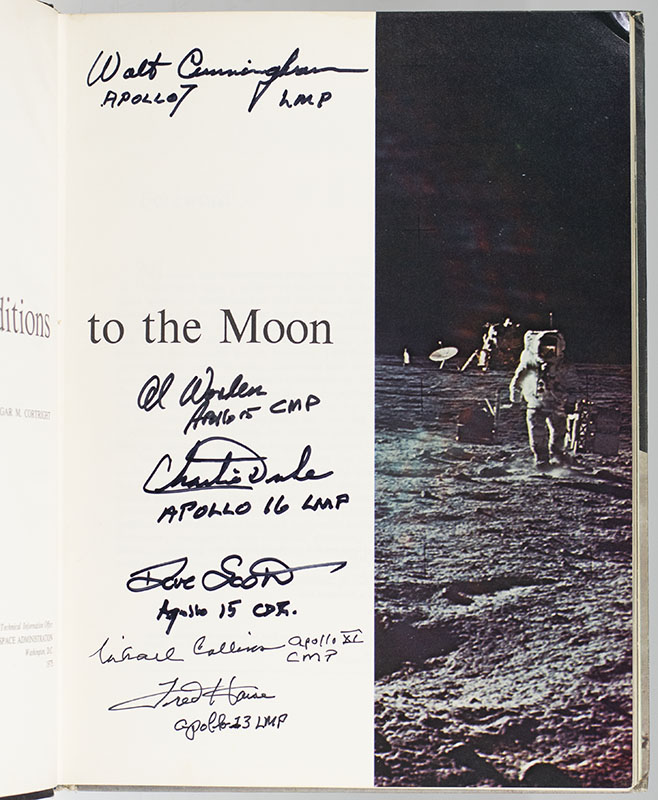 Walt Cunningham
APOLLO 7 LMP
ditions to the Moon
GAR M. CORTRIGHT
Al Worden
Apollo 15 CMP
Charlie Duke
APOLLO 16 LMP
Dave Scott
Apollo 15 CDR.
Technical Information Office
SPACE ADMINISTRATION
Washington, D.C.
1975
Michael Collins Apollo XI
CMP
Fred Haise
Apollo 13 LMP